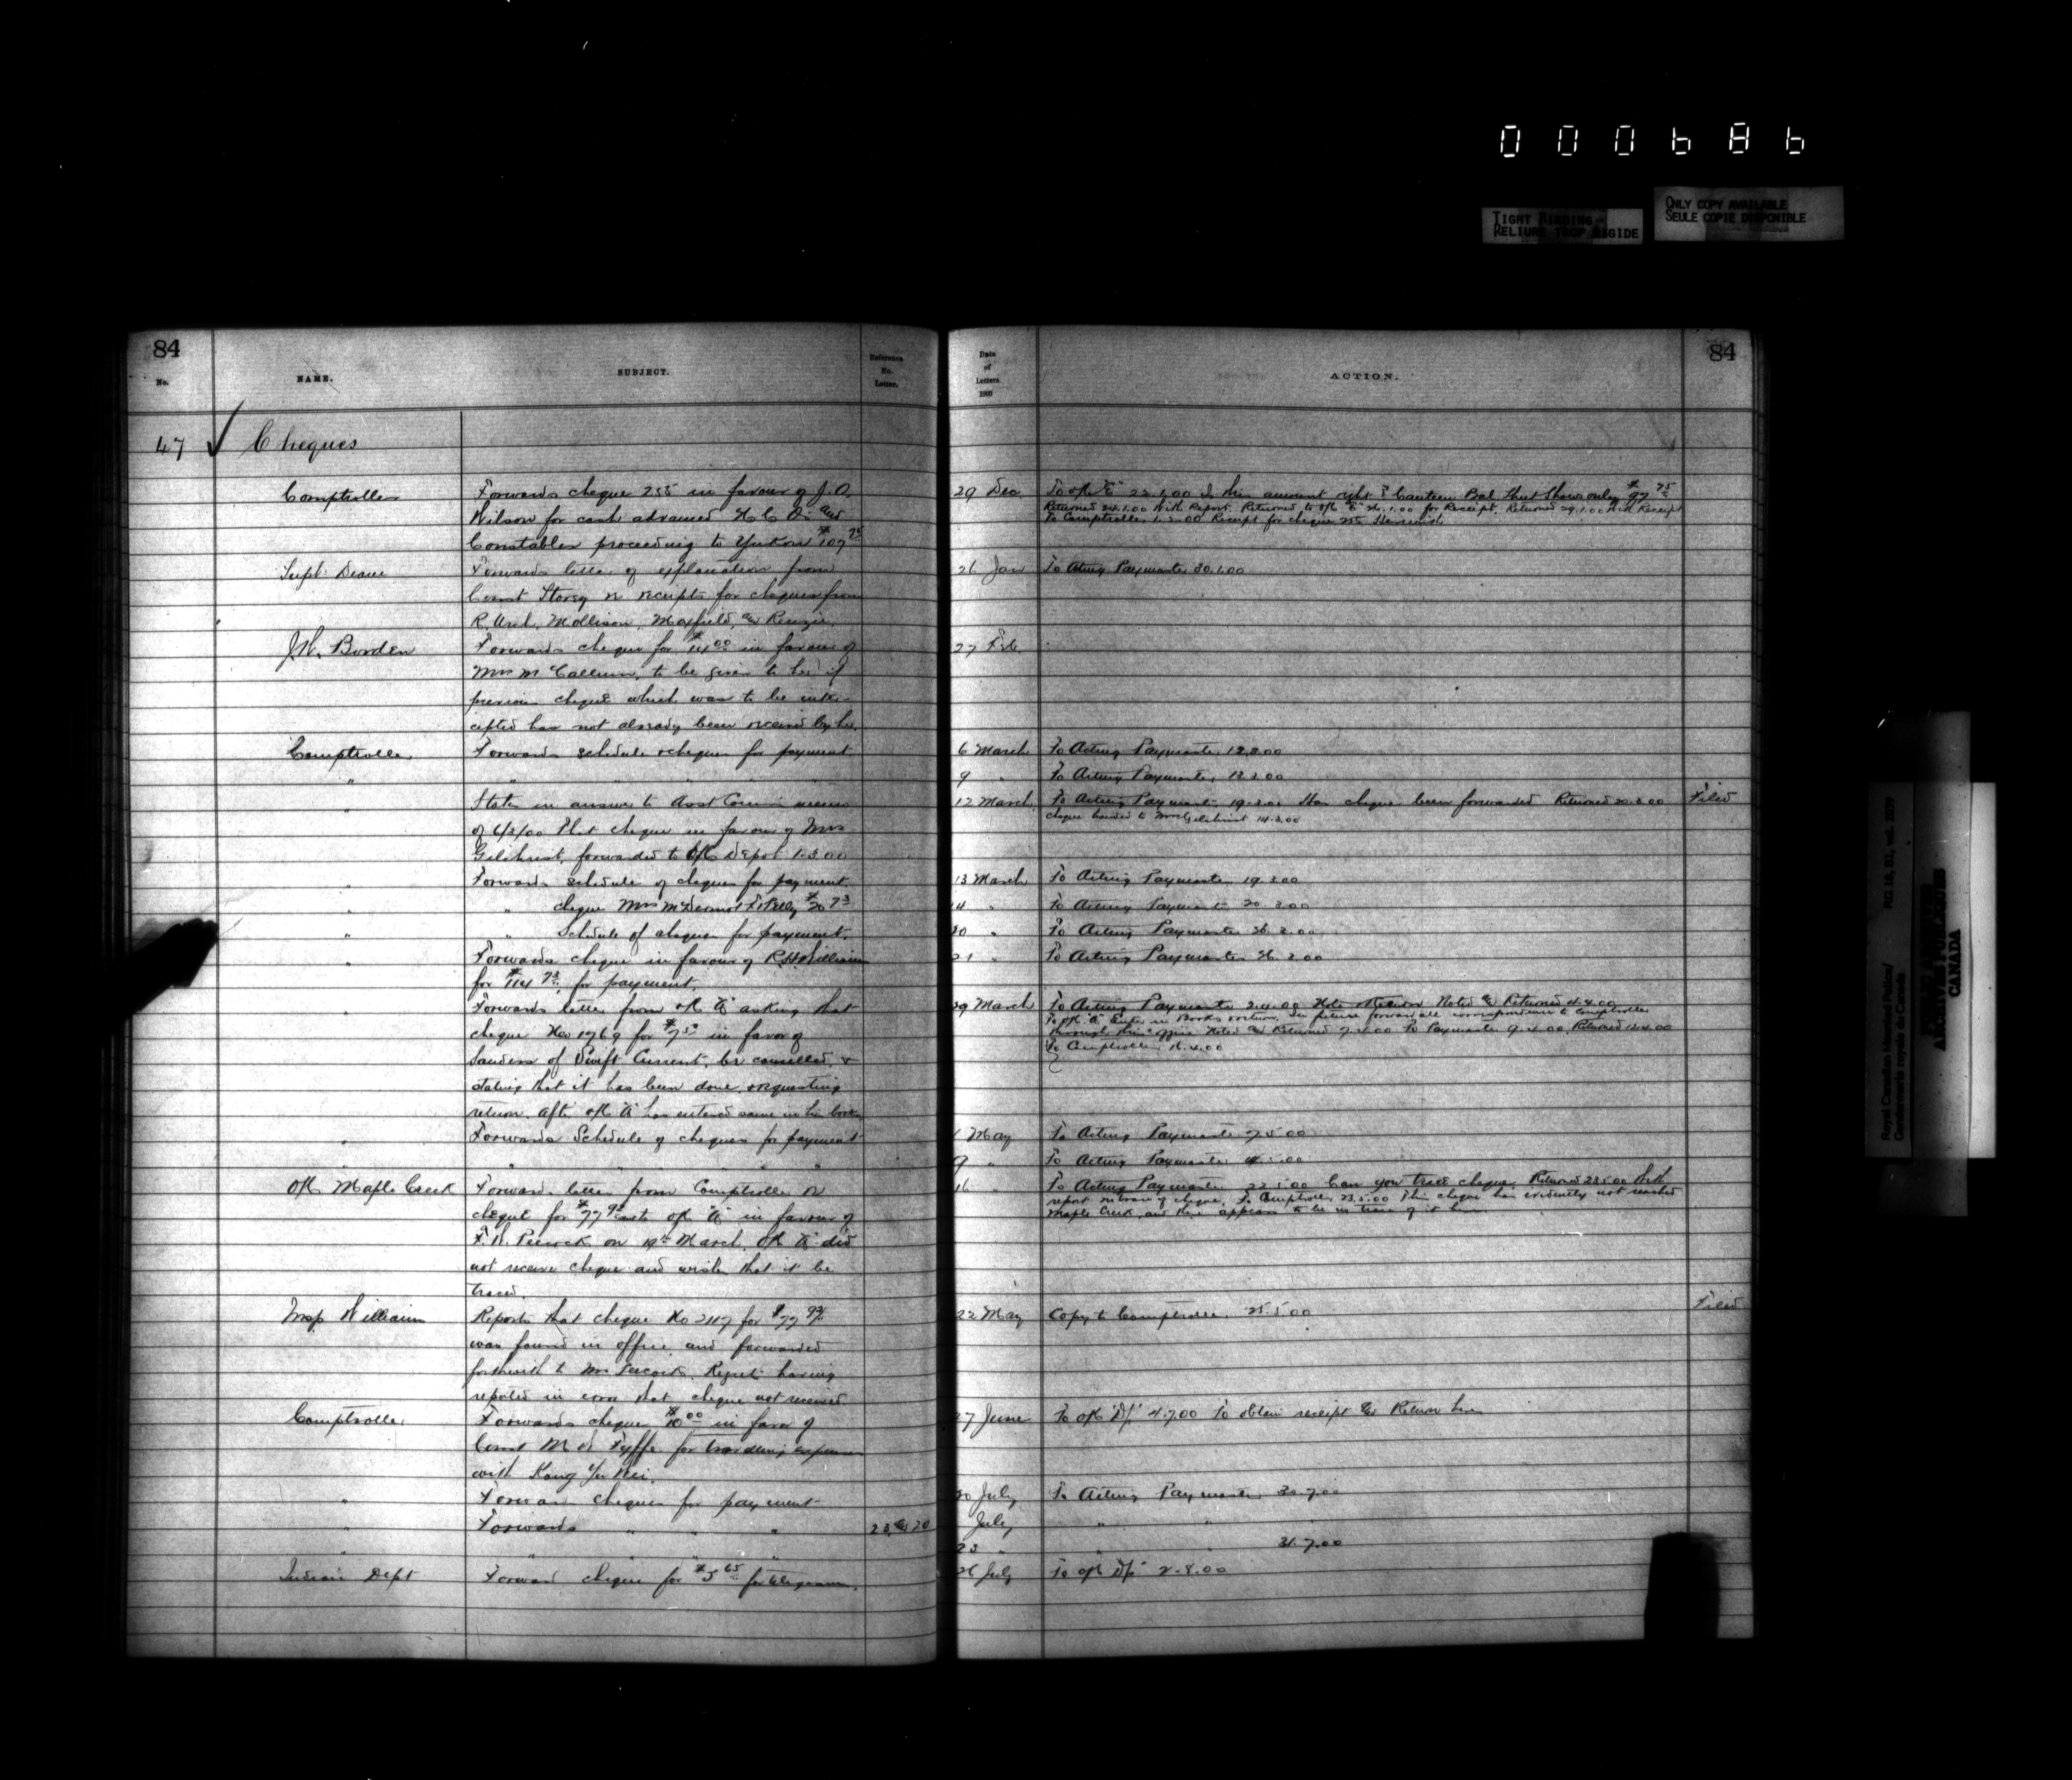 000686
TIGHT BINDING
RELIURE TROP RIGIDE
ONLY COPY AVAILABLE
SEULE COPIE DISPONIBLE
84
No.
NAME.
SUBJECT.
Reference
No.
Letter.
47 ✓ Cheques
Comptroller
Forwards cheque 255 in favour of J.O.
Wilson for cash advanced N C O's and
Constables proceeding to Yukon $107
Supt. Deane
Forwards letter of explanation from
Const Storey re receipts for cheques from
R. Mollison, Maxfield, and
J.W. Borden
Forwards cheque for $14 00 in favour of
Mrs McCallum, to be given to her if
previous cheque which was to be inter-
cepted has not already been received by her.
Comptroller
Forwards schedule cheques for payment
" " " " "
" States in answer to Asst Comm memo
of 6/3/00 that cheque in favour of Mrs
Gilchrist, forwarded to O/C Depot 1.3.00
" Forwards schedule of cheques for payment.
" " cheque Mrs McDermot
" " Schedule of cheques for payment.
" Forwards cheque in favour of R.H. Williams
for $114 for payment.
" Forwards letter from O/C "A" asking that
cheque No 1969 for $7 50 in favor of
Sanders of Swift Current, be cancelled, &
stating that it has been done requesting
return after O/C "A" has entered same in his books
" Forwards Schedule of cheques for payment
" " " " "
O/C Maple Creek
Forwards letter from Comptroller re
cheque for $77 sent to O/C "A" in favour of
Peecock on 19th March. O/C "A" did
not receive cheque and wishes that it be
traced.
Insp. Williams
Reports that cheque No 2117 for $77
was found in office and forwarded
forthwith to Mr Peecock. Regrets having
reported in error that cheque not received
Comptroller
Forwards cheque $10 00 in favor of
Const Fyffe for travelling expenses
with Kang Yu Wei.
" Forwards cheques for payment
" Forwards " " " 23 & 20
" " " " "
Indian Dept
Forward cheque for $5 65 for telegrams.
84
Date
of
Letters.
1900
ACTION.
29 Dec To O/C "E" 22.1.00 Is this amount right? Canteen Bal Sheet Shows only $97 75
Returned 24.1.00 With Report. Returned to O/C "E" 26.1.00 for Receipt. Returned 29.1.00 With Receipt
To Comptroller 1.2.00 Receipt for cheque 255 Herewith
26 Jan To Acting Paymaster 30.1.00
27 Feb.
6 March To Acting Paymaster 12.3.00
9 " To Acting Paymaster 13.3.00
12 March To Acting Paymaster 19.3.00 Has cheque been forwarded Returned 20.3.00 Filed
cheque handed to Mrs Gilchrist 14.3.00
13 March To Acting Paymaster 19.3.00
14 " To Acting Paymaster 20.3.00
20 " To Acting Paymaster 26.3.00
21 " To Acting Paymaster 26.3.00
29 March To Acting Paymaster 2.4.00 Note & Return Noted & Returned 4.4.00
To O/C "A" Enter in Books & return. In future forward all correspondence to Comptroller
through this office Noted and Returned 7.4.00 To Paymaster 9.4.00 Returned 12.4.00
To Comptroller 16.4.00
1 May To Acting Paymaster 7.5.00
9 " To Acting Paymaster
16 " To Acting Paymaster 22.5.00 Can you trace cheque. Returned 23.5.00 With
report no trace of cheque. To Comptroller 23.5.00 This cheque has evidently not reached
Maple Creek, and there appears to be no trace of it here
22 May Copy to Comptroller 25.5.00 Filed
27 June To O/C "D/p" 4.7.00 To obtain receipt & Return here
20 July To Acting Paymaster 30.7.00
July " "
23 " " " 31.7.00
26 July To O/C "D/p" 2.8.00
Royal Canadian Mounted Police/
Gendarmerie royale du Canada
RG 18, B1, vol. 2039
PUBLIC ARCHIVES
ARCHIVES PUBLIQUES
CANADA